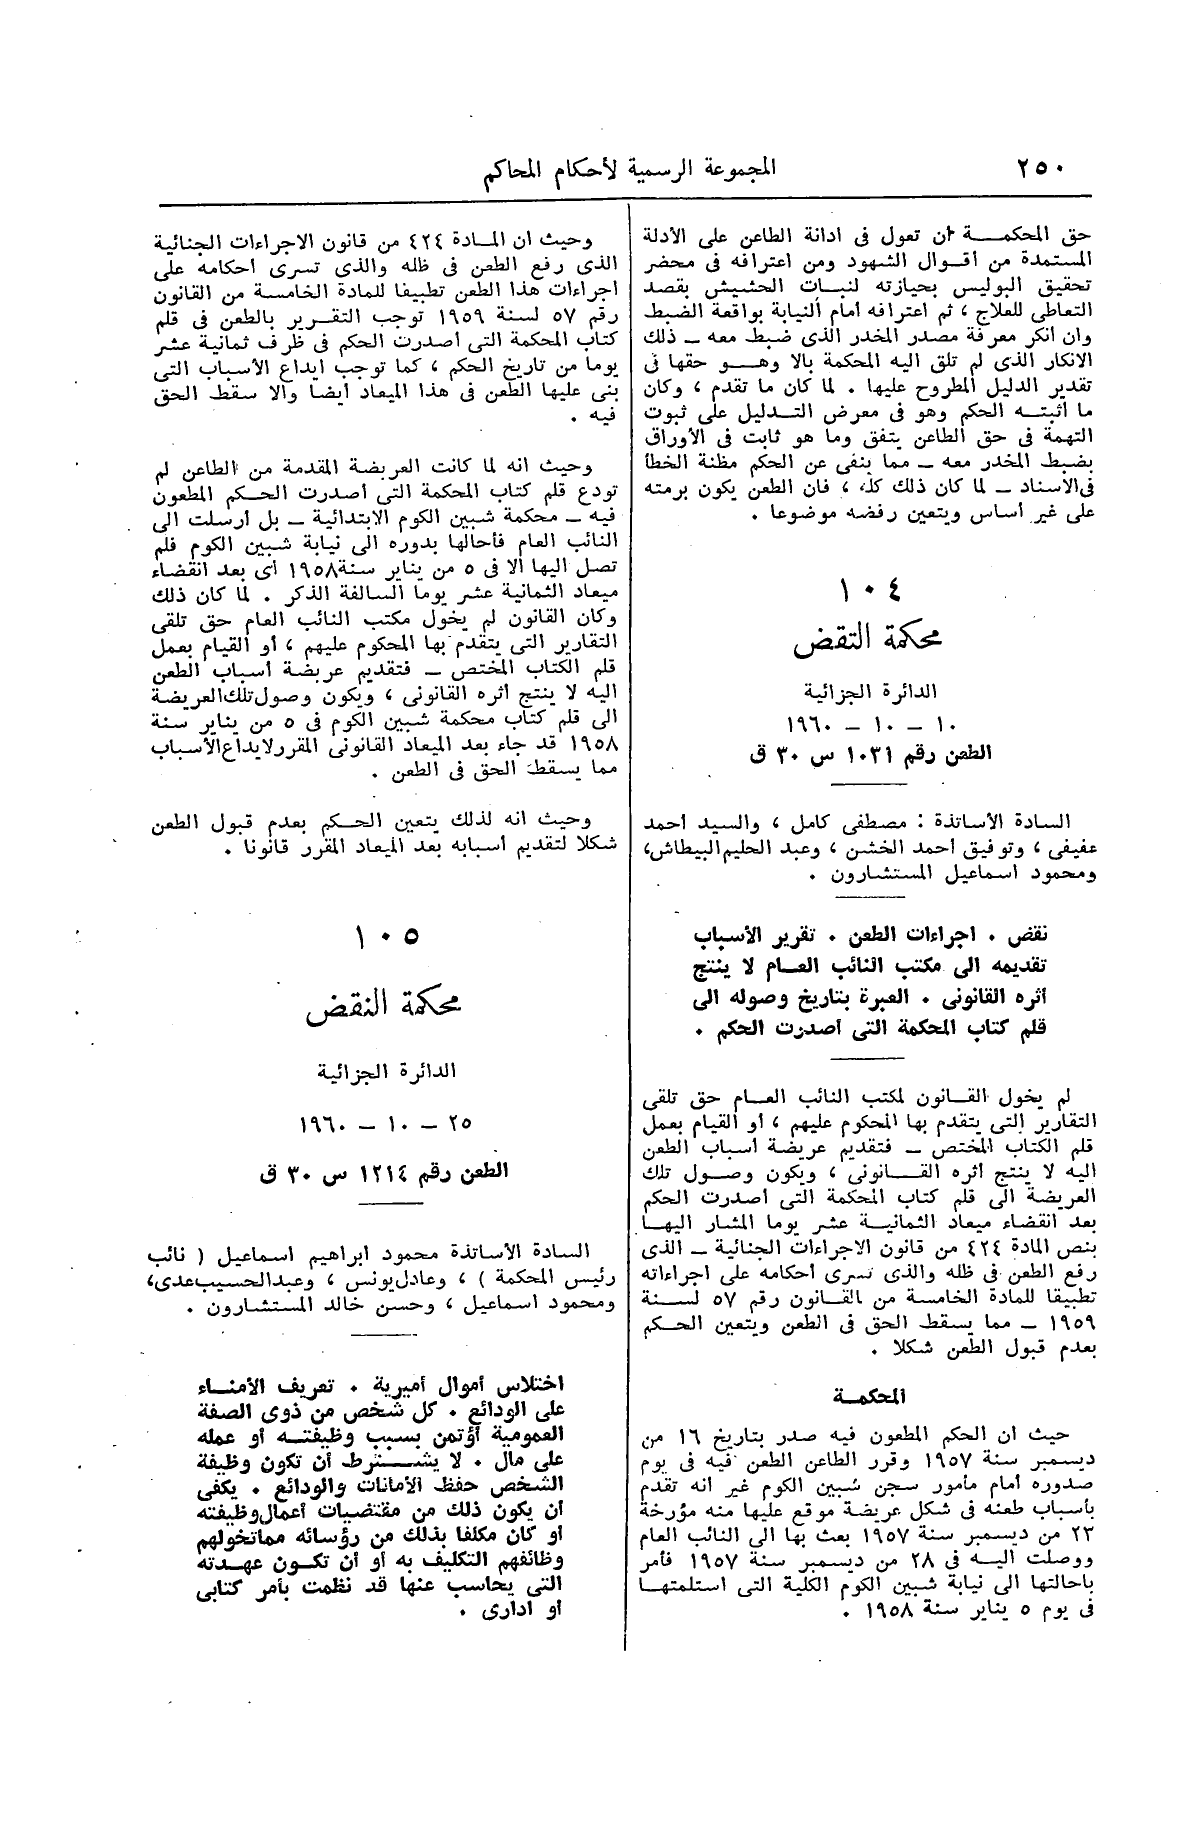 ٢٥٠
المجموعة الرسمية لأحكام المحاكم
حق المحكمة ان تعول فى ادانة الطاعن على الأدلة
المستمدة من أقوال الشهود ومن اعترافه فى محضر
تحقيق البوليس بحيازته لنبات الحشيش بقصد
التعاطى للعلاج ، ثم اعترافه أمام النيابة بواقعة الضبط
وان أنكر معرفة مصدر المخدر الذى ضبط معه ــ ذلك
الانكار الذى لم تلق اليه المحكمة بالا وهو حقها فى
تقدير الدليل المطروح عليها . لما كان ما تقدم ، وكان
ما أثبته الحكم وهو فى معرض التدليل على ثبوت
التهمة فى حق الطاعن يتفق وما هو ثابت فى الأوراق
بضبط المخدر معه ــ مما ينفى عن الحكم مظنة الخطأ
فى الاسناد ــ لما كان ذلك كله ، فان الطعن يكون برمته
على غير أساس ويتعين رفضه موضوعا .
١٠٤
محكمة النقض
الدائرة الجزائية
١٠ ــ ١٠ ــ ١٩٦٠
الطعن رقم ١٠٣١ س ٣٠ ق
السادة الأساتذة : مصطفى كامل ، والسيد أحمد
عفيفى ، وتوفيق أحمد الخشن ، وعبد الحليم البيطاش،
ومحمود اسماعيل المستشارون .
نقض . اجراءات الطعن . تقرير الأسباب
تقديمه الى مكتب النائب العام لا ينتج
أثره القانونى . العبرة بتاريخ وصوله الى
قلم كتاب المحكمة التى أصدرت الحكم .
لم يخول القانون لمكتب النائب العام حق تلقى
التقارير التى يتقدم بها المحكوم عليهم ، أو القيام بعمل
قلم الكتاب المختص ــ فتقديم عريضة أسباب الطعن
اليه لا ينتج أثره القانونى ، ويكون وصول تلك
العريضة الى قلم كتاب المحكمة التى أصدرت الحكم
بعد انقضاء ميعاد الثمانية عشر يوما المشار اليها
بنص المادة ٤٢٤ من قانون الاجراءات الجنائية ــ الذى
رفع الطعن فى ظله والذى تسرى أحكامه على اجراءاته
تطبيقا للمادة الخامسة من القانون رقم ٥٧ لسنة
١٩٥٩ ــ مما يسقط الحق فى الطعن ويتعين الحكم
بعدم قبول الطعن شكلا .
المحكمة
حيث ان الحكم المطعون فيه صدر بتاريخ ١٦ من
ديسمبر سنة ١٩٥٧ وقرر الطاعن الطعن فيه فى يوم
صدوره أمام مأمور سجن شبين الكوم غير انه تقدم
بأسباب طعنه فى شكل عريضة موقع عليها منه مؤرخة
٢٣ من ديسمبر سنة ١٩٥٧ بعث بها الى النائب العام
ووصلت اليه فى ٢٨ من ديسمبر سنة ١٩٥٧ فأمر
باحالتها الى نيابة شبين الكوم الكلية التى استلمتها
فى يوم ٥ يناير سنة ١٩٥٨ .
وحيث ان المادة ٤٢٤ من قانون الاجراءات الجنائية
الذى رفع الطعن فى ظله والذى تسرى أحكامه على
اجراءات هذا الطعن تطبيقا للمادة الخامسة من القانون
رقم ٥٧ لسنة ١٩٥٩ توجب التقرير بالطعن فى قلم
كتاب المحكمة التى أصدرت الحكم فى ظرف ثمانية عشر
يوما من تاريخ الحكم ، كما توجب ايداع الأسباب التى
بنى عليها الطعن فى هذا الميعاد أيضا والا سقط الحق
فيه .
وحيث انه لما كانت العريضة المقدمة من الطاعن لم
تودع قلم كتاب المحكمة التى أصدرت الحكم المطعون
فيه ــ محكمة شبين الكوم الابتدائية ــ بل أرسلت الى
النائب العام فأحالها بدوره الى نيابة شبين الكوم فلم
تصل اليها الا فى ٥ من يناير سنة ١٩٥٨ أى بعد انقضاء
ميعاد الثمانية عشر يوما السالفة الذكر . لما كان ذلك
وكان القانون لم يخول مكتب النائب العام حق تلقى
التقارير التى يتقدم بها المحكوم عليهم ، أو القيام بعمل
قلم الكتاب المختص ــ فتقديم عريضة أسباب الطعن
اليه لا ينتج أثره القانونى ، ويكون وصول تلك العريضة
الى قلم كتاب محكمة شبين الكوم فى ٥ من يناير سنة
١٩٥٨ قد جاء بعد الميعاد القانونى المقرر لايداع الأسباب
مما يسقط الحق فى الطعن .
وحيث انه لذلك يتعين الحكم بعدم قبول الطعن
شكلا لتقديم أسبابه بعد الميعاد المقرر قانونا .
١٠٥
محكمة النقض
الدائرة الجزائية
٢٥ ــ ١٠ ــ ١٩٦٠
الطعن رقم ١٢١٤ س ٣٠ ق
السادة الأساتذة محمود ابراهيم اسماعيل ( نائب
رئيس المحكمة ) ، وعادل يونس ، وعبد الحسيب عدى،
ومحمود اسماعيل ، وحسن خالد المستشارون .
اختلاس أموال أميرية . تعريف الأمناء
على الودائع . كل شخص من ذوى الصفة
العمومية أؤتمن بسبب وظيفته أو عمله
على مال . لا يشترط أن تكون وظيفة
الشخص حفظ الأمانات والودائع . يكفى
أن يكون ذلك من مقتضيات أعمال وظيفته
أو كان مكلفا بذلك من رؤسائه مما تخولهم
وظائفهم التكليف به أو أن تكون عهدته
التى يحاسب عنها قد نظمت بأمر كتابى
أو ادارى .